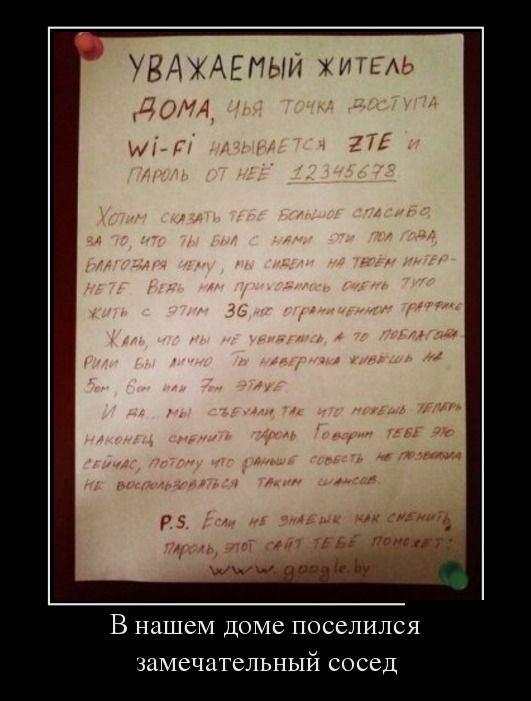 УВАЖАЕМЫЙ ЖИТЕЛЬ
ДОМА, ЧЬЯ ТОЧКА ДОСТУПА
Wi-Fi НАЗЫВАЕТСЯ ZTE И
ПАРОЛЬ ОТ НЕЁ 12345678.
ХОТИМ СКАЗАТЬ ТЕБЕ БОЛЬШОЕ СПАСИБО,
ЗА ТО, ЧТО ТЫ БЫЛ С НАМИ ЭТИ ПОЛ ГОДА,
БЛАГОДАРЯ ЧЕМУ, МЫ СИДЕЛИ НА ТВОЁМ ИНТЕР-
НЕТЕ. ВЕДЬ НАМ ПРИХОДИЛОСЬ ОЧЕНЬ ТУГО
ЖИТЬ С ЭТИМ 3G, ОГРАНИЧЕННОМ ТРАФФИКЕ
ЖАЛЬ, ЧТО МЫ НЕ УВИДЕЛИСЬ, А ТО ПОБЛАГОДА-
РИЛИ БЫ ЛИЧНО. ТЫ НАВЕРНЯКА ЖИВЁШЬ НА
5ом, 6ом ИЛИ 7ом ЭТАЖЕ.
И ДА... МЫ СЪЕХАЛИ, ТАК ЧТО МОЖЕШЬ ТЕПЕРЬ
НАКОНЕЦ СМЕНИТЬ ПАРОЛЬ. ГОВОРИМ ТЕБЕ ЭТО
СЕЙЧАС, ПОТОМУ ЧТО РАНЬШЕ СОВЕСТЬ НЕ ПОЗВОЛЯЛА
НЕ ВОСПОЛЬЗОВАТЬСЯ ТАКИМ ШАНСОМ.
P.S. ЕСЛИ НЕ ЗНАЕШЬ КАК СМЕНИТЬ
ПАРОЛЬ, ЭТОТ САЙТ ТЕБЕ ПОМОЖЕТ:
www.google.by
В нашем доме поселился
замечательный сосед